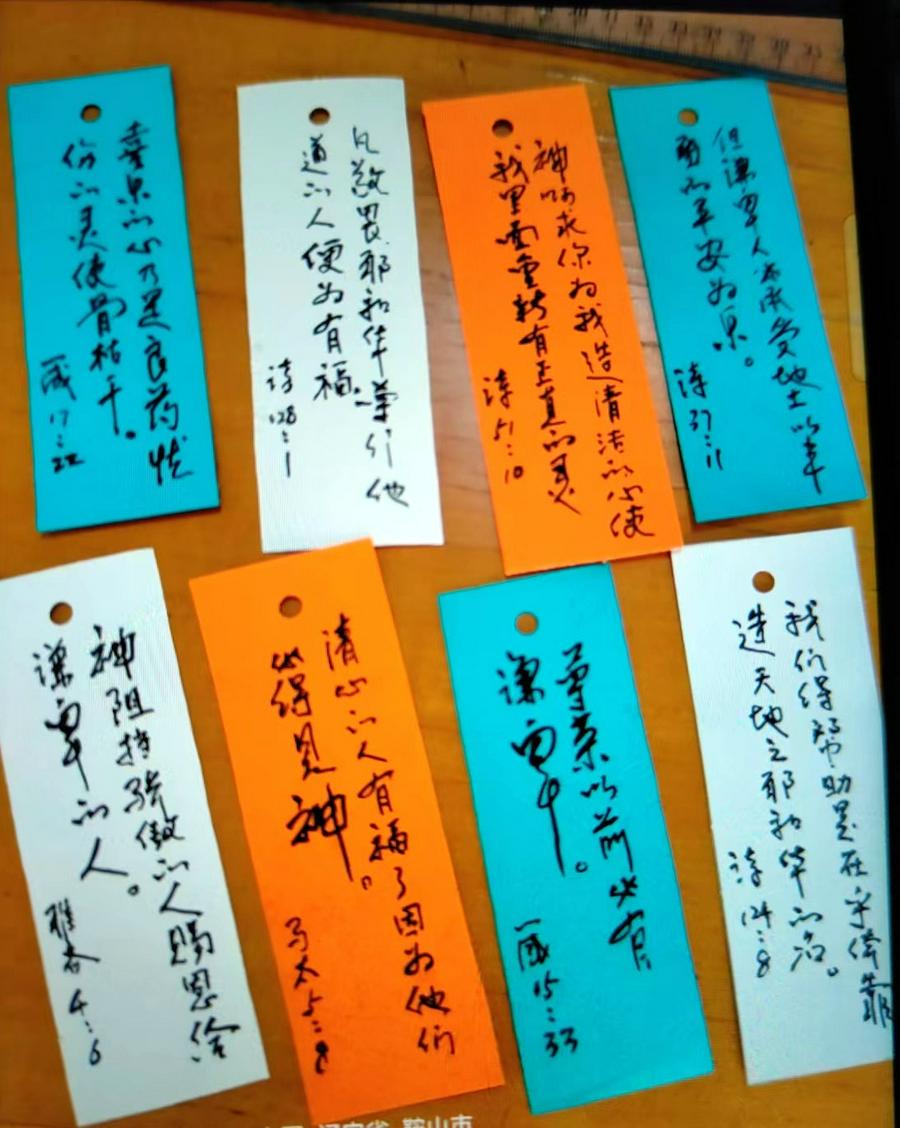 喜乐的心乃是良药忧
伤的灵使骨枯干。
箴17:22
凡敬畏耶和华遵行他
道的人便为有福
诗128:1
神啊求你为我造清洁的心使
我里面重新有正直的灵
诗51:10
但谦卑人必承受地土以丰
盛的平安为乐。
诗37:11
神阻挡骄傲的人赐恩给
谦卑的人。
雅各4:6
清心的人有福了因为他们
必得见神。
马太5:8
尊荣以前必有
谦卑。
箴15:33
我们得帮助是在乎倚靠
造天地之耶和华的名。
诗124:8
辽宁省 鞍山市